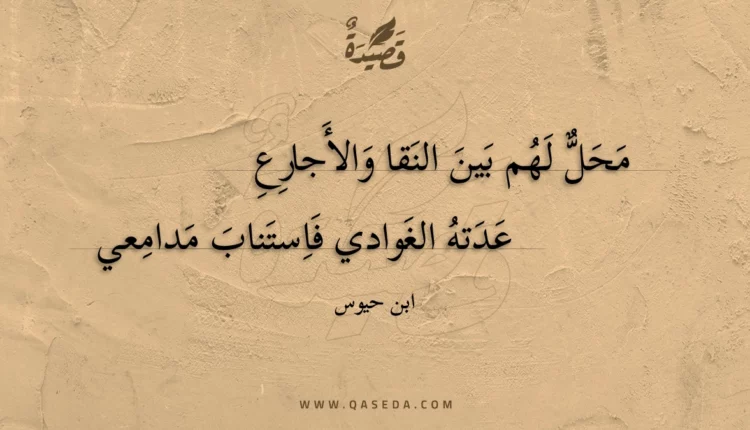 قَصِيدَةٌ
مَحَلٌّ لَهُم بَينَ النَقا وَالأَجارِعِ
عَدَتهُ الغَوادي فَاِستَنابَ مَدامِعي
ابن حيوس
WWW.QASEDA.COM